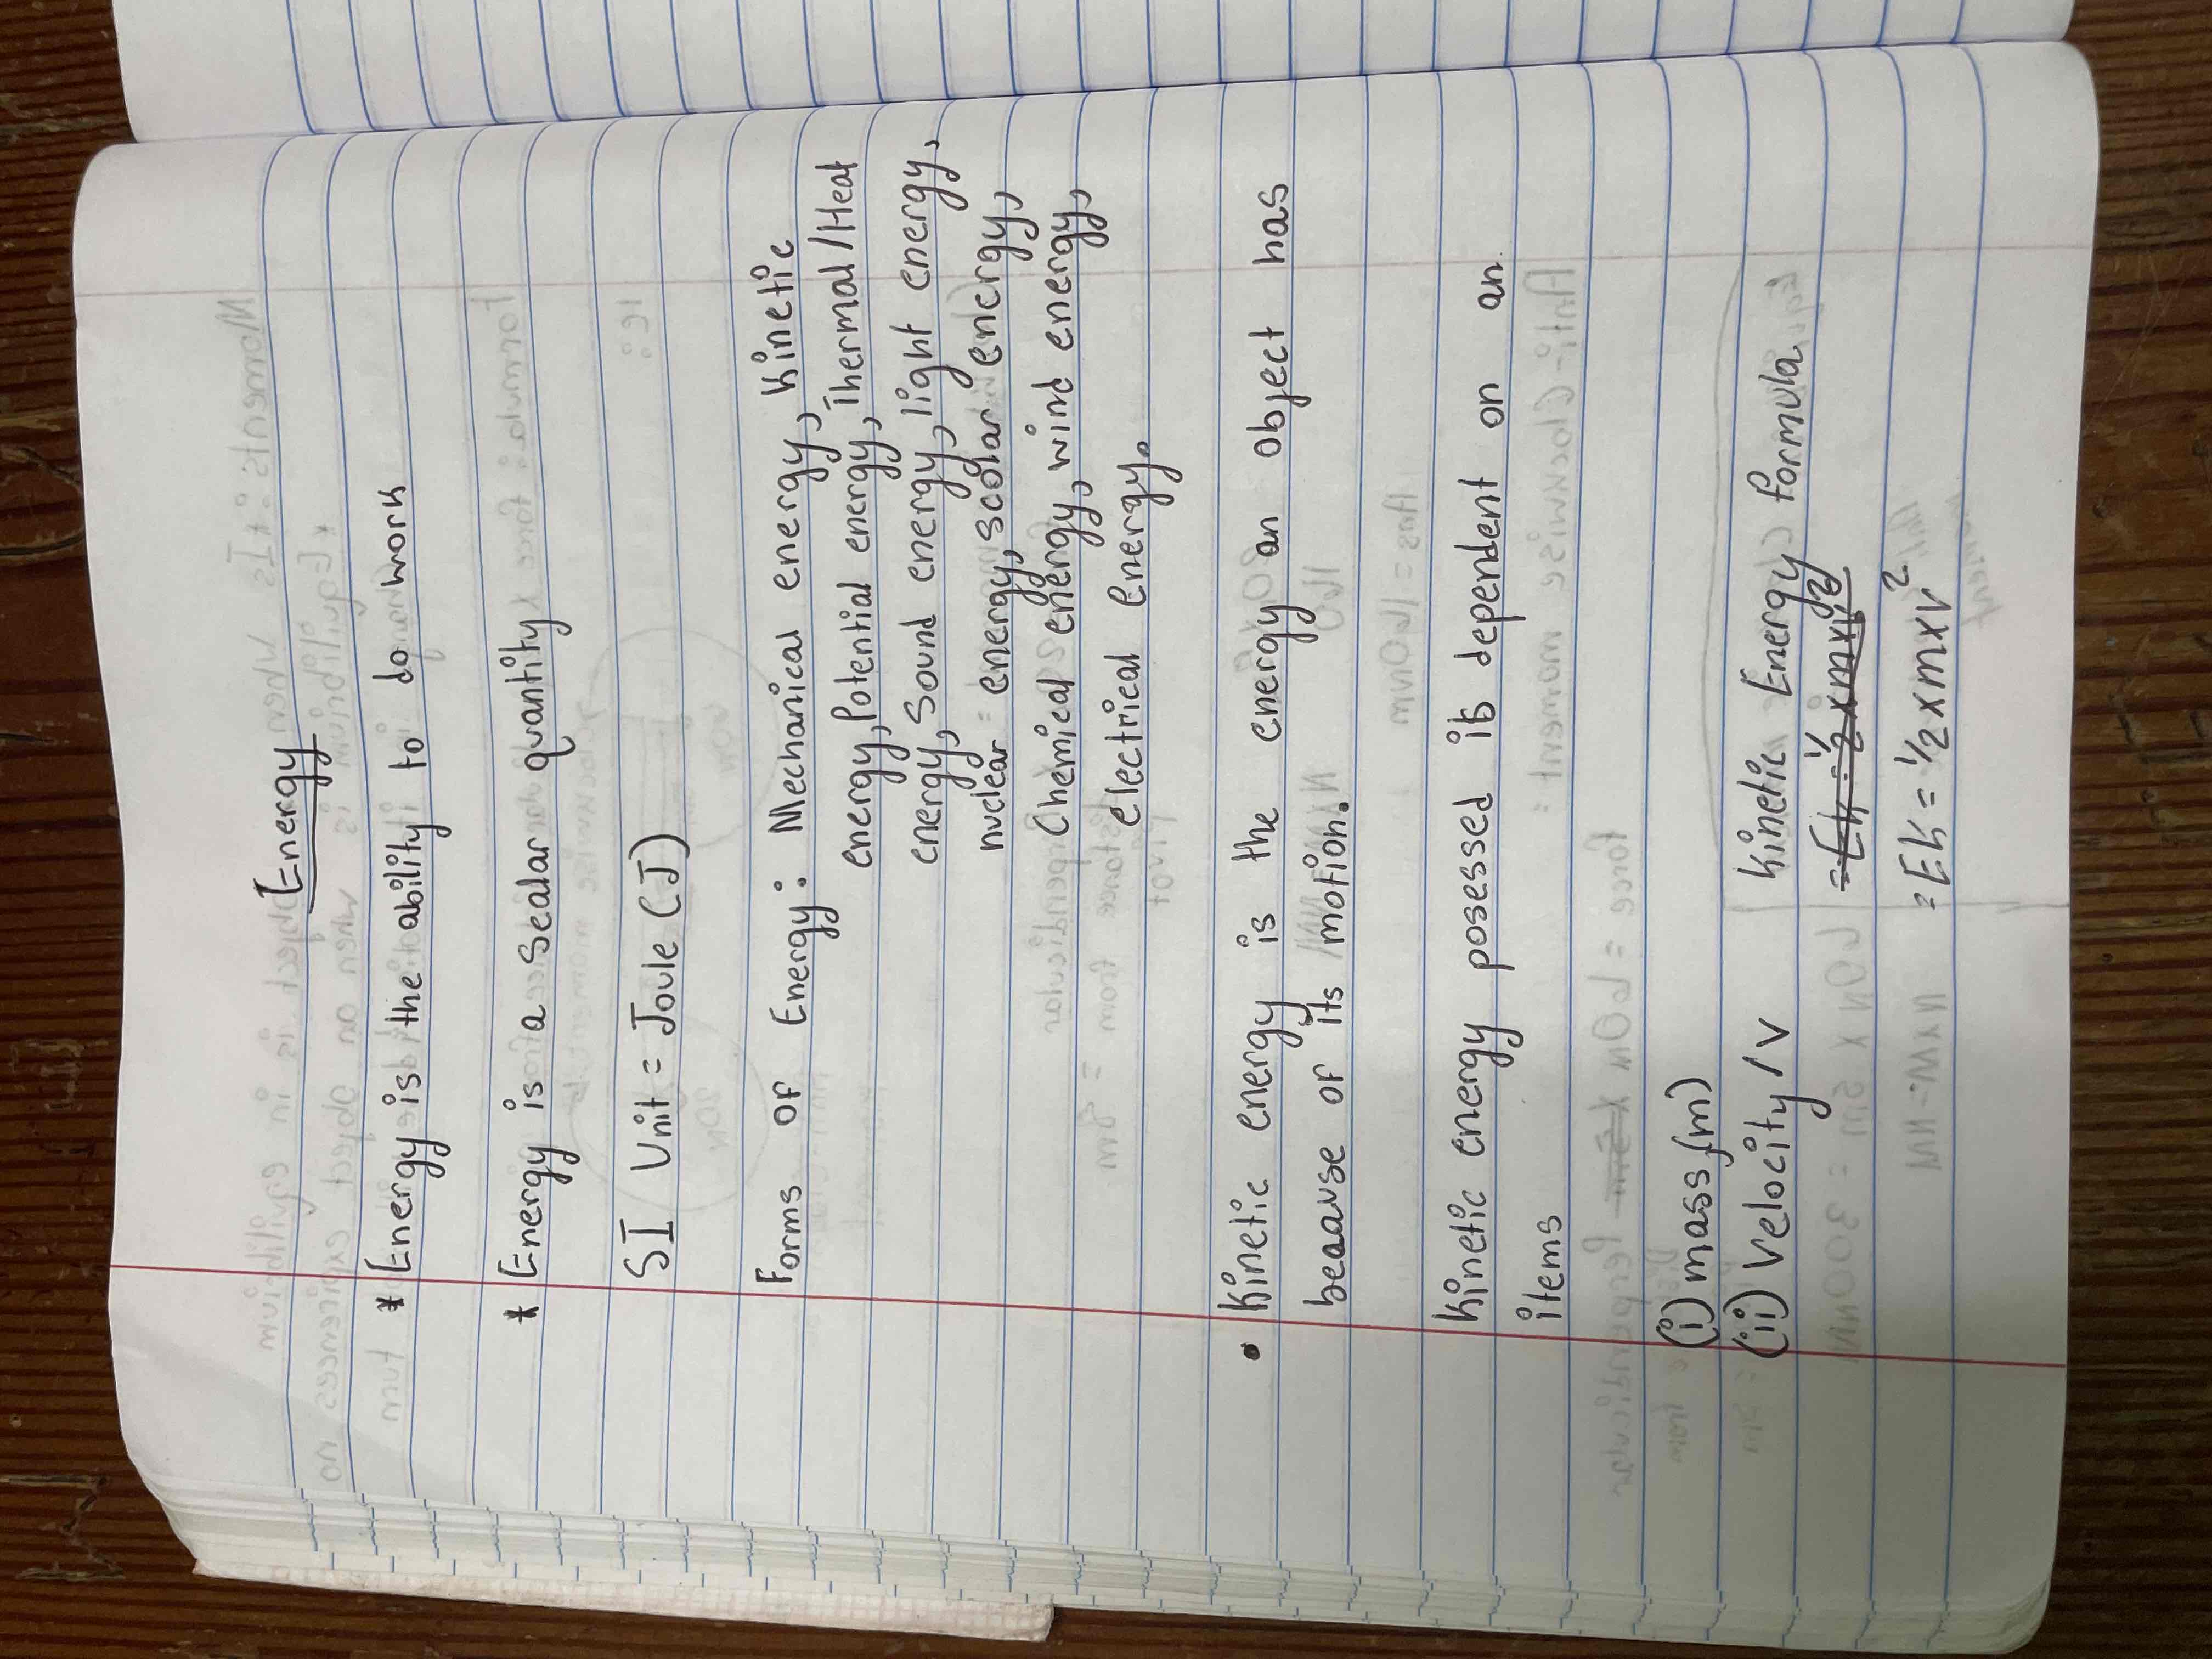 Energy
* Energy is the ability to do work
* Energy is a Scalar quantity
SI Unit = Joule (J)
Forms of Energy: Mechanical energy, Kinetic
energy, Potential energy, Thermal/Heat
energy, Sound energy, light energy,
nuclear energy, scolar energy,
Chemical energy, wind energy,
electrical energy.
• Kinetic energy is the energy an object has
beaause of its motion.
Kinetic energy posessed is dependent on an
items
(i) mass,(m)
(ii) Velocity/v
Kinetic Energy formula
=Ek=1/2xmxv²
=Ek=1/2xmxv²